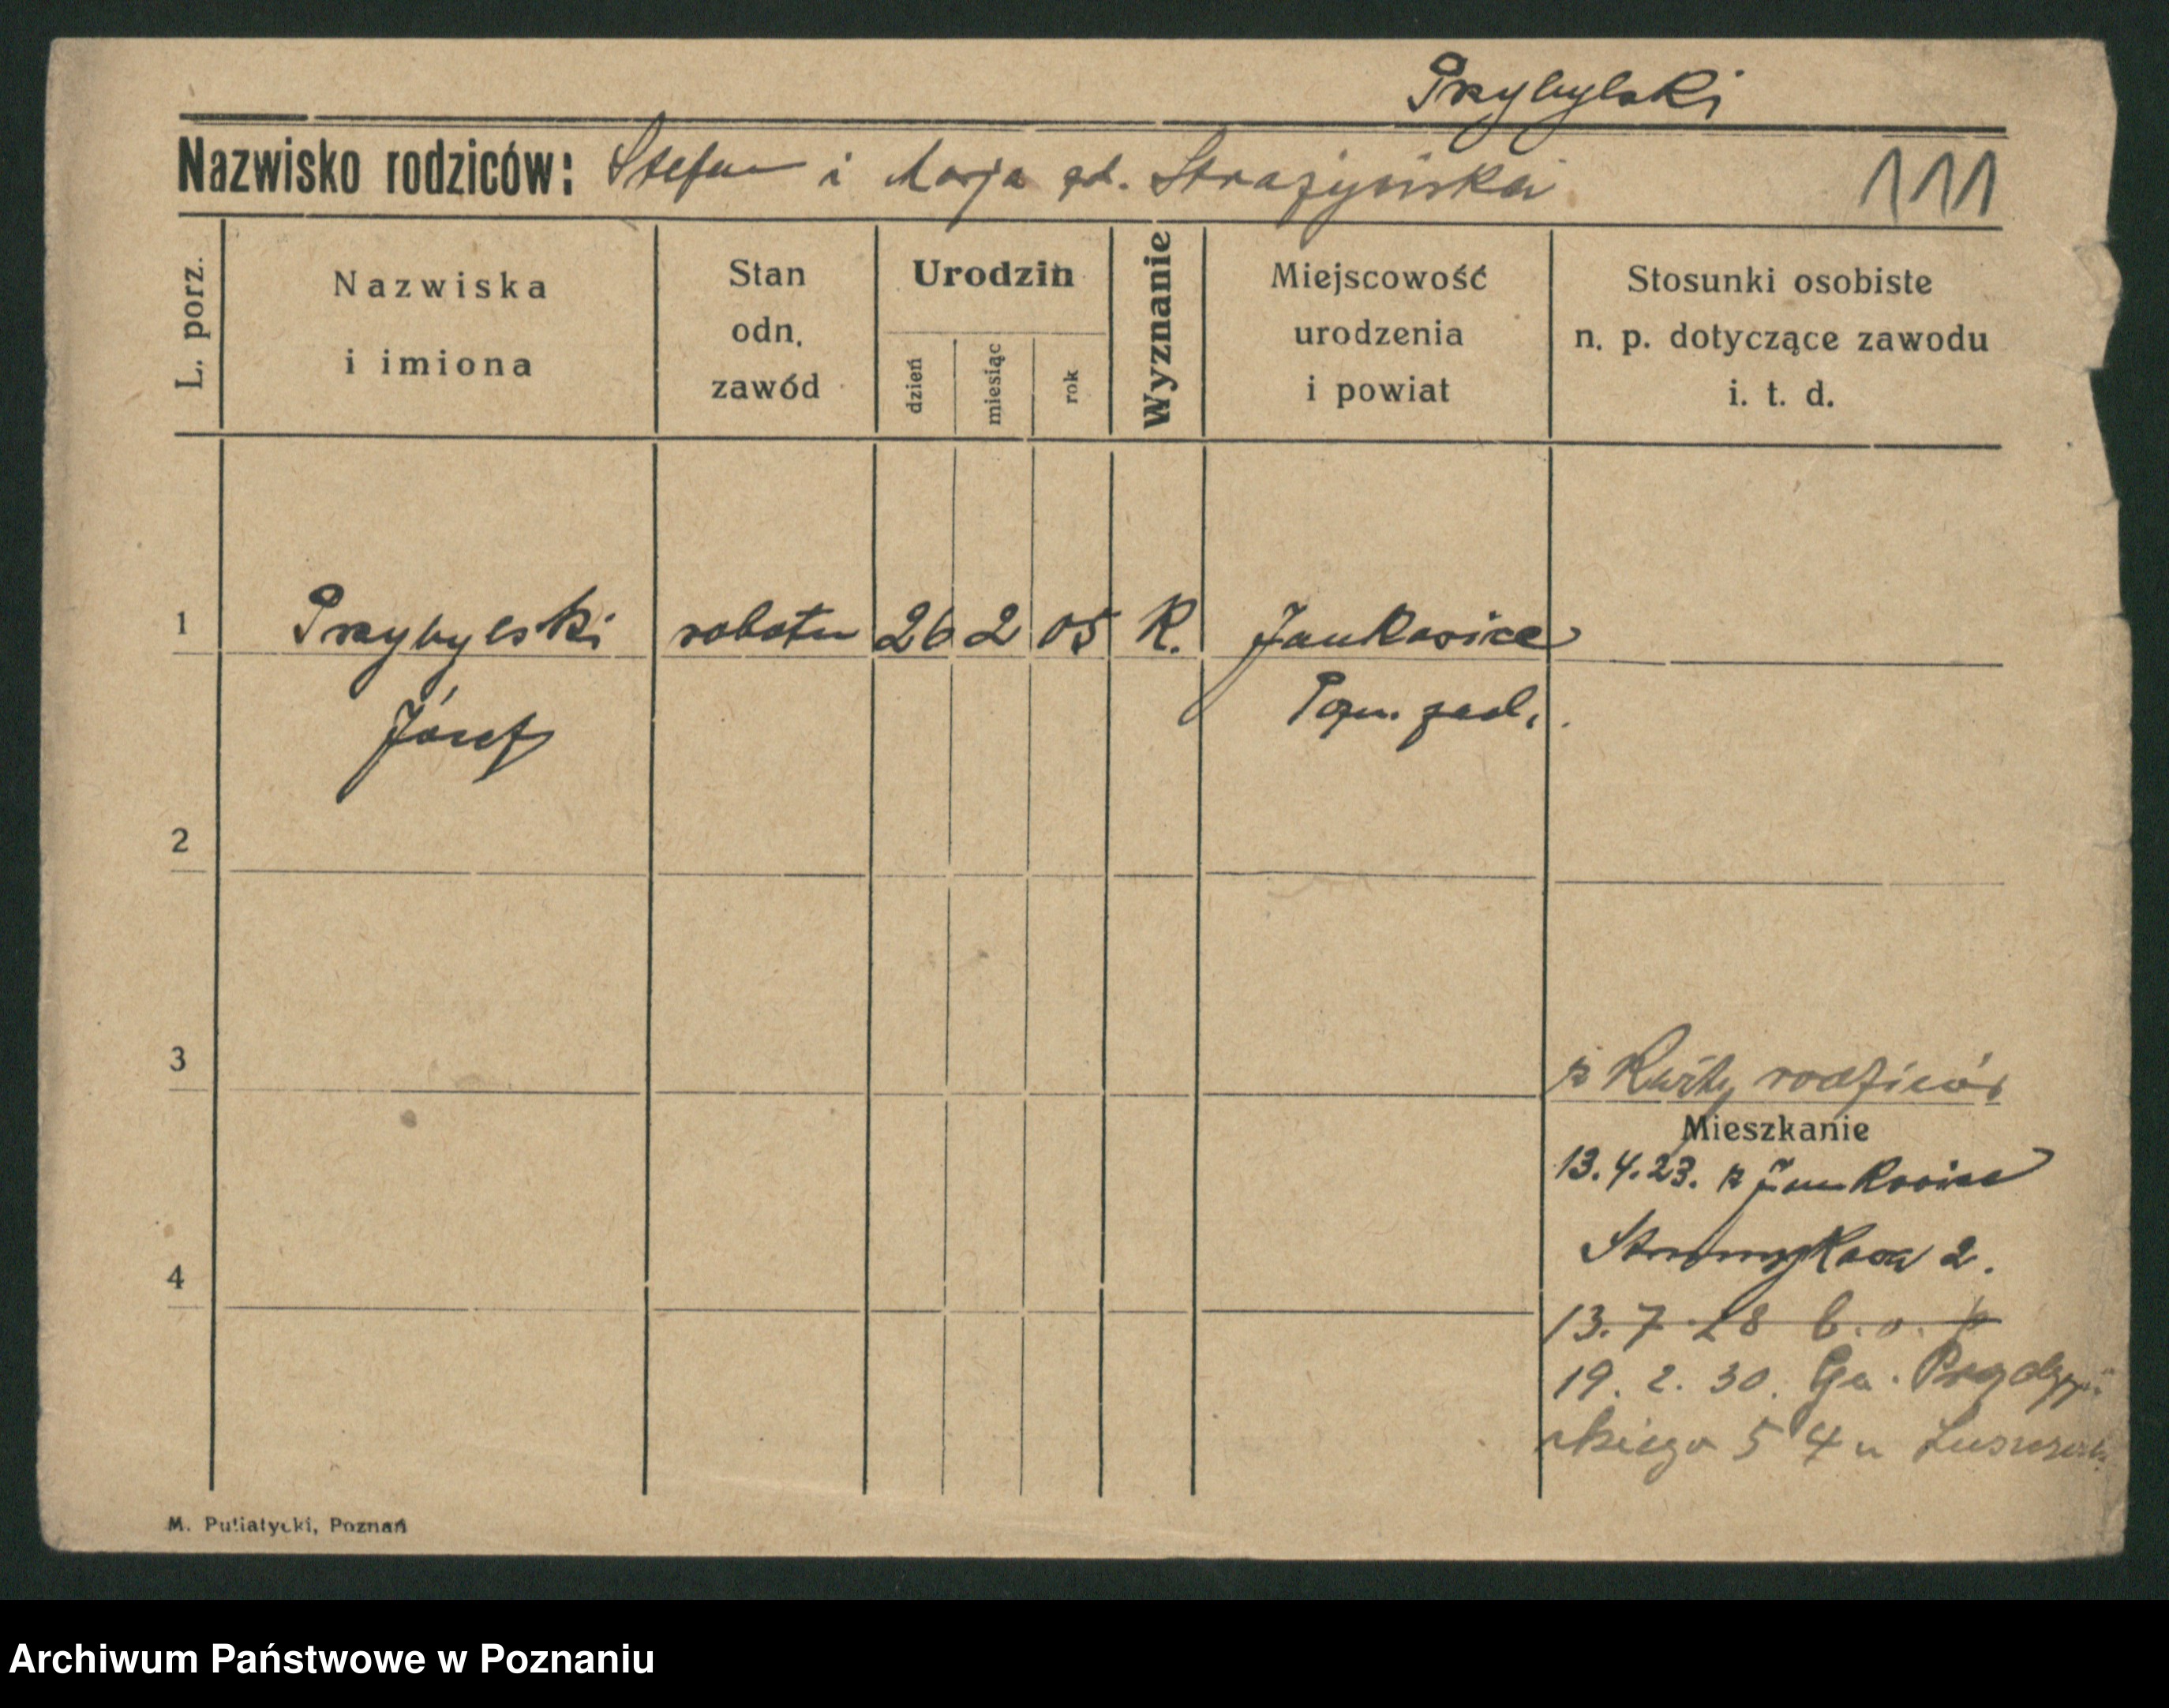 Przybylski
Nazwisko rodziców: Stefan i Marja gd. Strażyńska
111
L. porz.
Nazwiska
i imiona
Stan
odn.
zawód
Urodzin
dzień
miesiąc
rok
Wyznanie
Miejscowość
urodzenia
i powiat
Stosunki osobiste
n. p. dotyczące zawodu
i. t. d.
1 Przybylski robotn 26 2 05 K. Jankowice
Józef
Pozn. zach.
2
3
z Karty rodziców
Mieszkanie
13.4.23. z Jankowice
4
2.
13. 7 28 b. o. p
19. 2. 30. Ga.
skiego 5 4 u
M. Putiatycki, Poznań
Archiwum Państwowe w Poznaniu